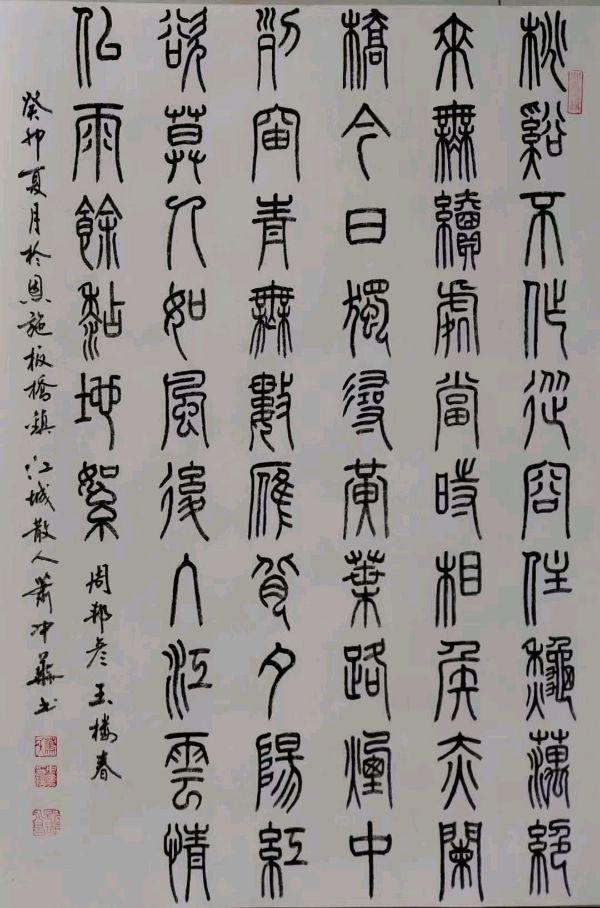 桃谿不作從容住龝藕絕
來無續處當時相矦赤闌
橋今日獨尋黃葉路煙中
列岫青無數雁背夕陽紅
欲莫人如風後入江雲情
似雨餘黏地絮 周邦彦玉楼春
癸卯夏月於恩施板橋鎮江城散人蕭冲華书